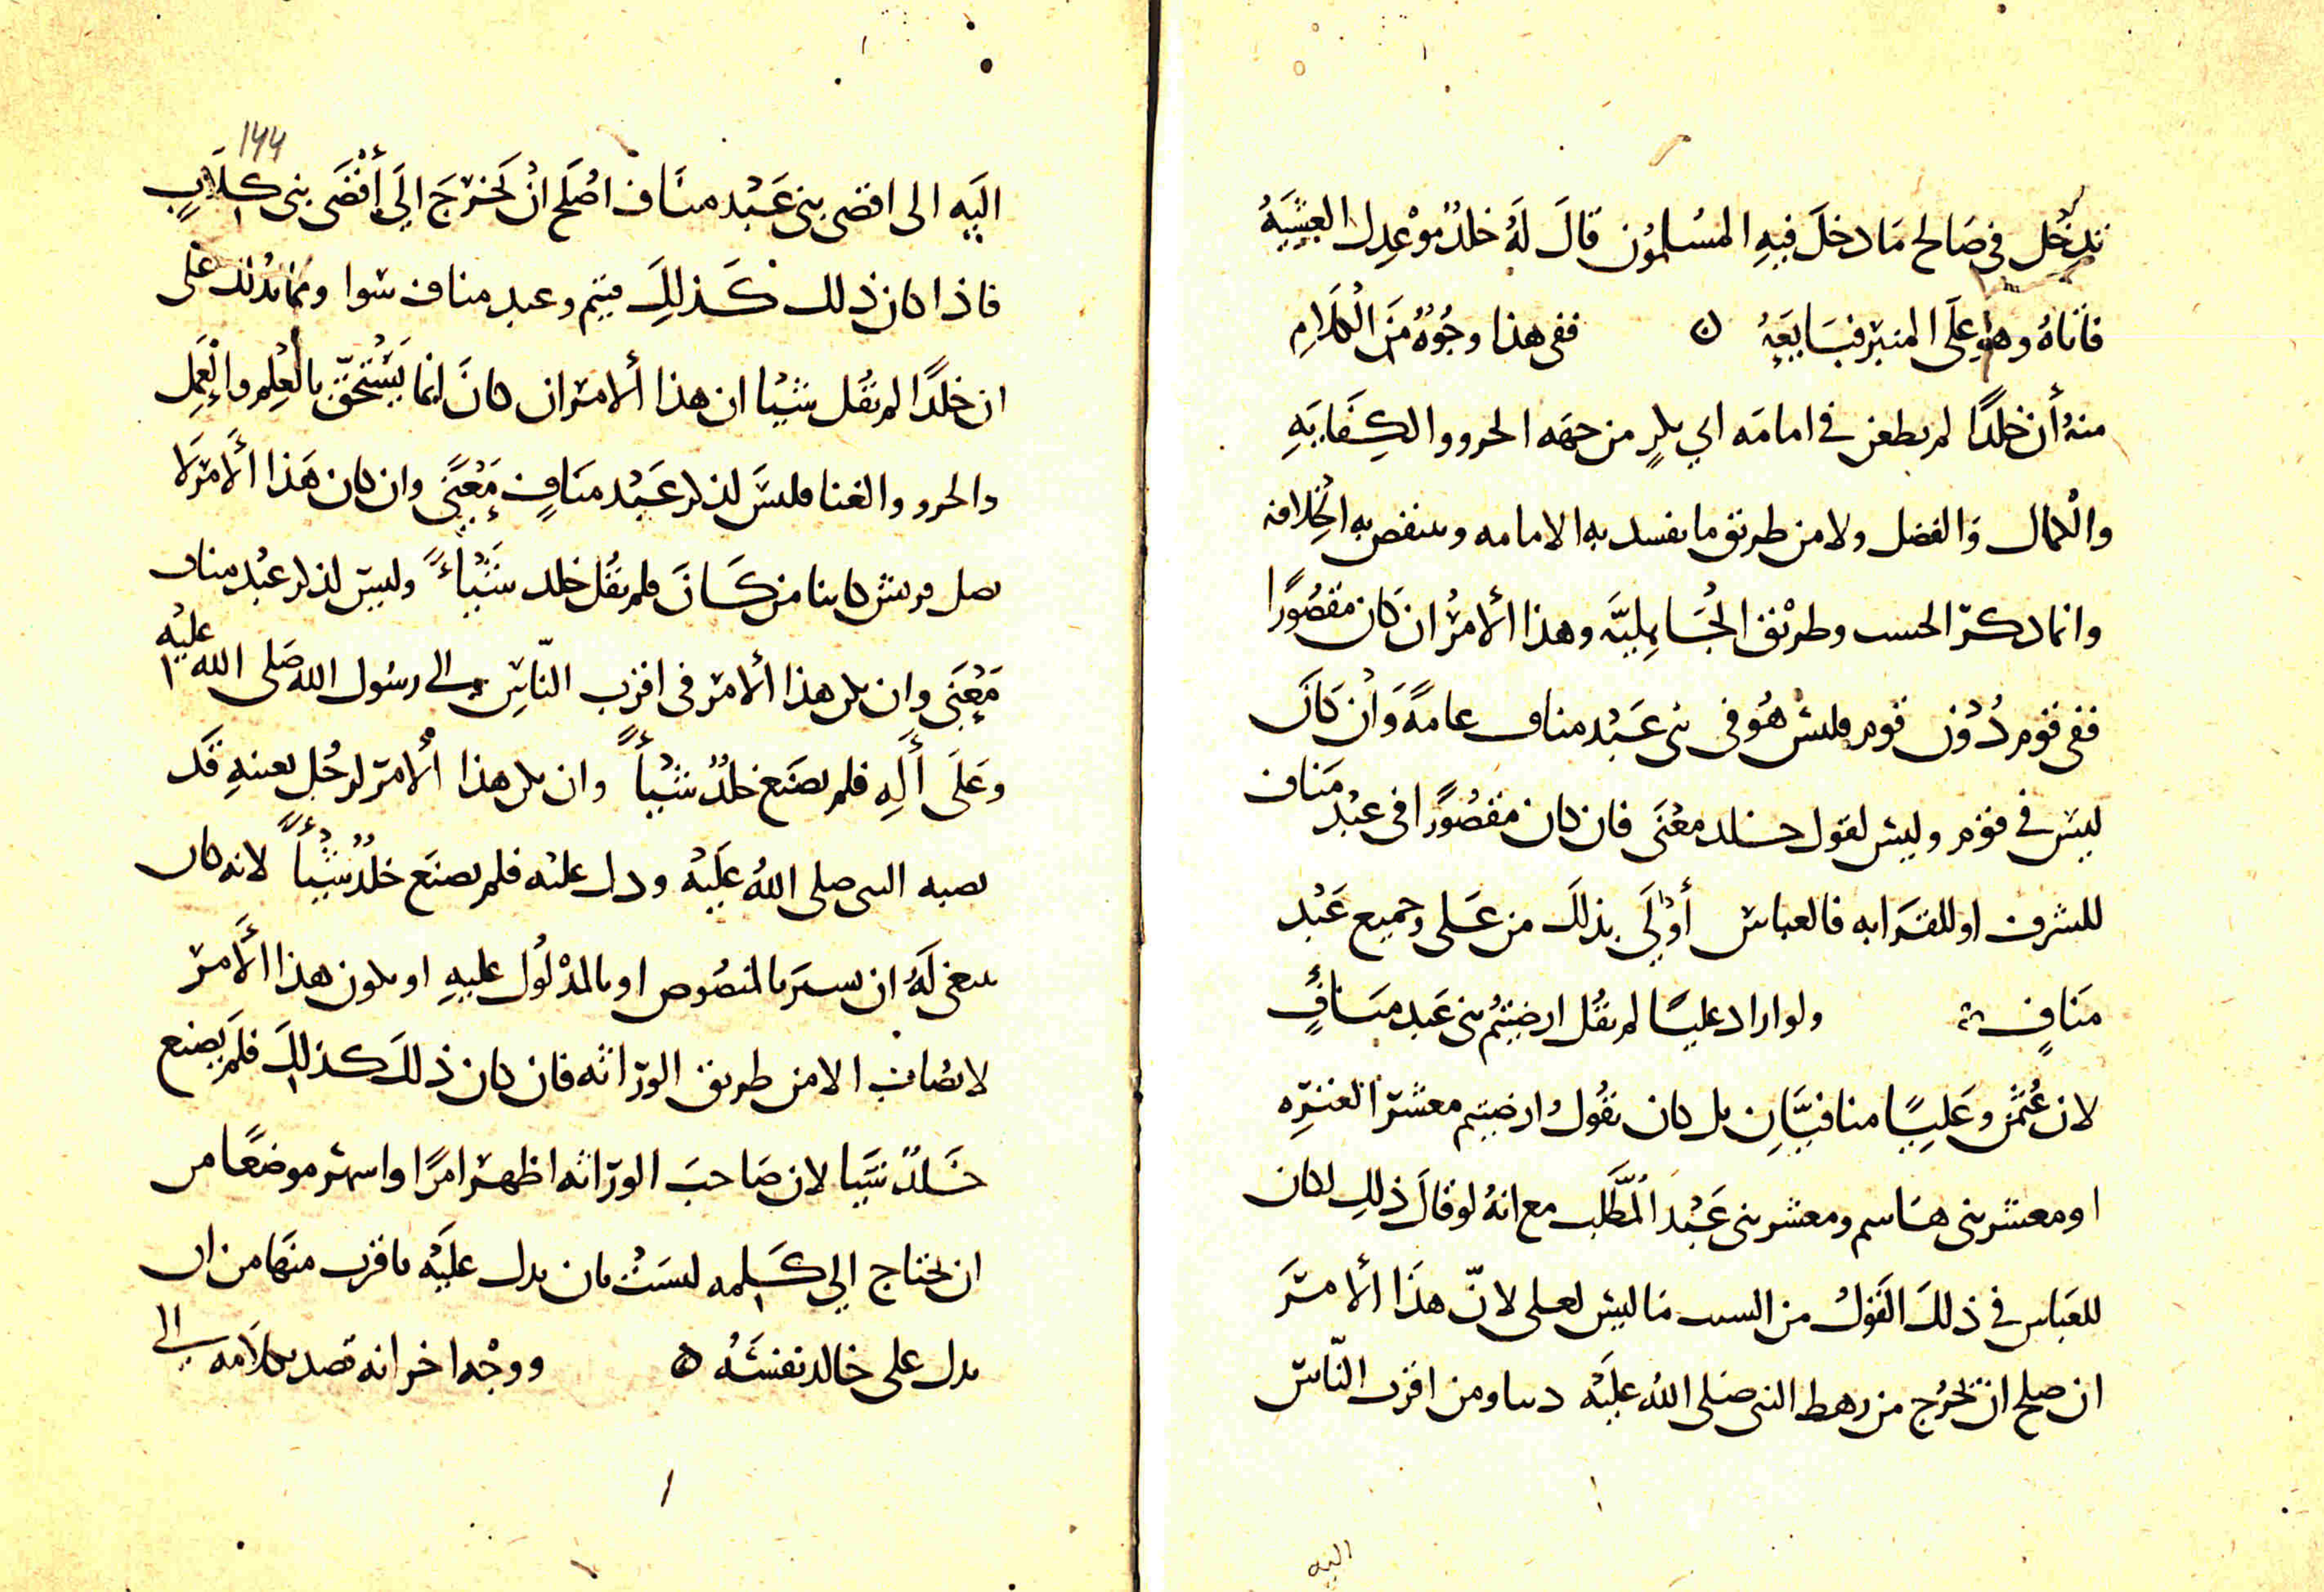 تدخل في صالح ما دخل فيه المسلمون قال له خلد موعدك العشية
فاتاه وهو على المنبر فبايعه ن ففي هذا وجوه من الكلام
منه أن خلدًا لم يطعن في امامه ابي بكرٍ من جهه الحرو والكفايه
والكمال والفضل ولا من طريق ما يفسد به الامامه وينقص به الخلافه
وانما ذكر الحسب وطريق الجاهليه وهذا الأمر ان كان مقصورًا
ففي قوم دون قوم فليس هو في بني عبد مناف عامة وان كان
ليس في قوم وليس لقول خلد معنى فان كان مقصورًا في عبد مناف
للشرف او للقرابه فالعباس أولى بذلك من على وجميع عبد
منافٍ ولو اراد عليًا لم يقل ارضيتم بني عبد منافٍ
لان عثمن وعليًا منافيان بل كان يقول ارضيتم معشر العتره
او معشر بني هاسم ومعشر بني عبد المطلب مع انه لو قال ذلك لكان
للعباس في ذلك القول من السبب ما ليس لعلى لانّ هذا الأمر
ان صلح ان يخرج من رهط النبي صلى الله عليه دنيا ومن اقرب الناس
اليه
١٤٤
اليه الى اقصى بني عبد مناف اصلح ان يخرج الي أقصى بني كلاب
فاذا كان ذلك كذلك فتيم وعبد مناف سوا ومما يدلك على
ان خلدًا لم يقل شيا ان هذا الأمر ان كان انما يستحق بالعلم والعمل
والحرو والغنا فليس لذكر عبد منافٍ معنًى وان كان هذا الأمر لا
يصل قريش كاينا من كان فلم يقل خلد شيأً وليس لذكر عبد مناف
معنى وان يكن هذا الأمر في اقرب الناس الى رسول الله صلى الله عليه
وعلى أله فلم يصنع خلد شيأً وان يكن هذا الأمر لرجل بعينه قد
نصبه النبي صلى الله عليه ودل عليه فلم يصنع خلد شيأً لانه كان
ينبغي له ان يسير بالمنصوص او بالمدلول عليه او يكون هذا الأمر
لا يصاب الا من طريق الوراثه فان كان ذلك كذلك فلم يصنع
خلد شيا لان صاحب الوراثه اظهر امرًا واشهر موضعًا من
ان يحتاج الي كلمه ليست بان يدل عليه باقرب منها من ان
يدل على خالد نفسه ه ووجه اخر انه قصد بكلامه الى